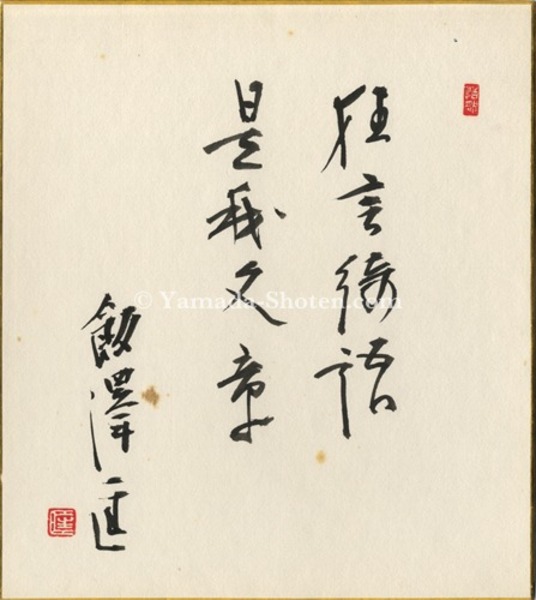 狂言綺語
是我文章
飯澤匡
© Yamada-Shoten.com
匡